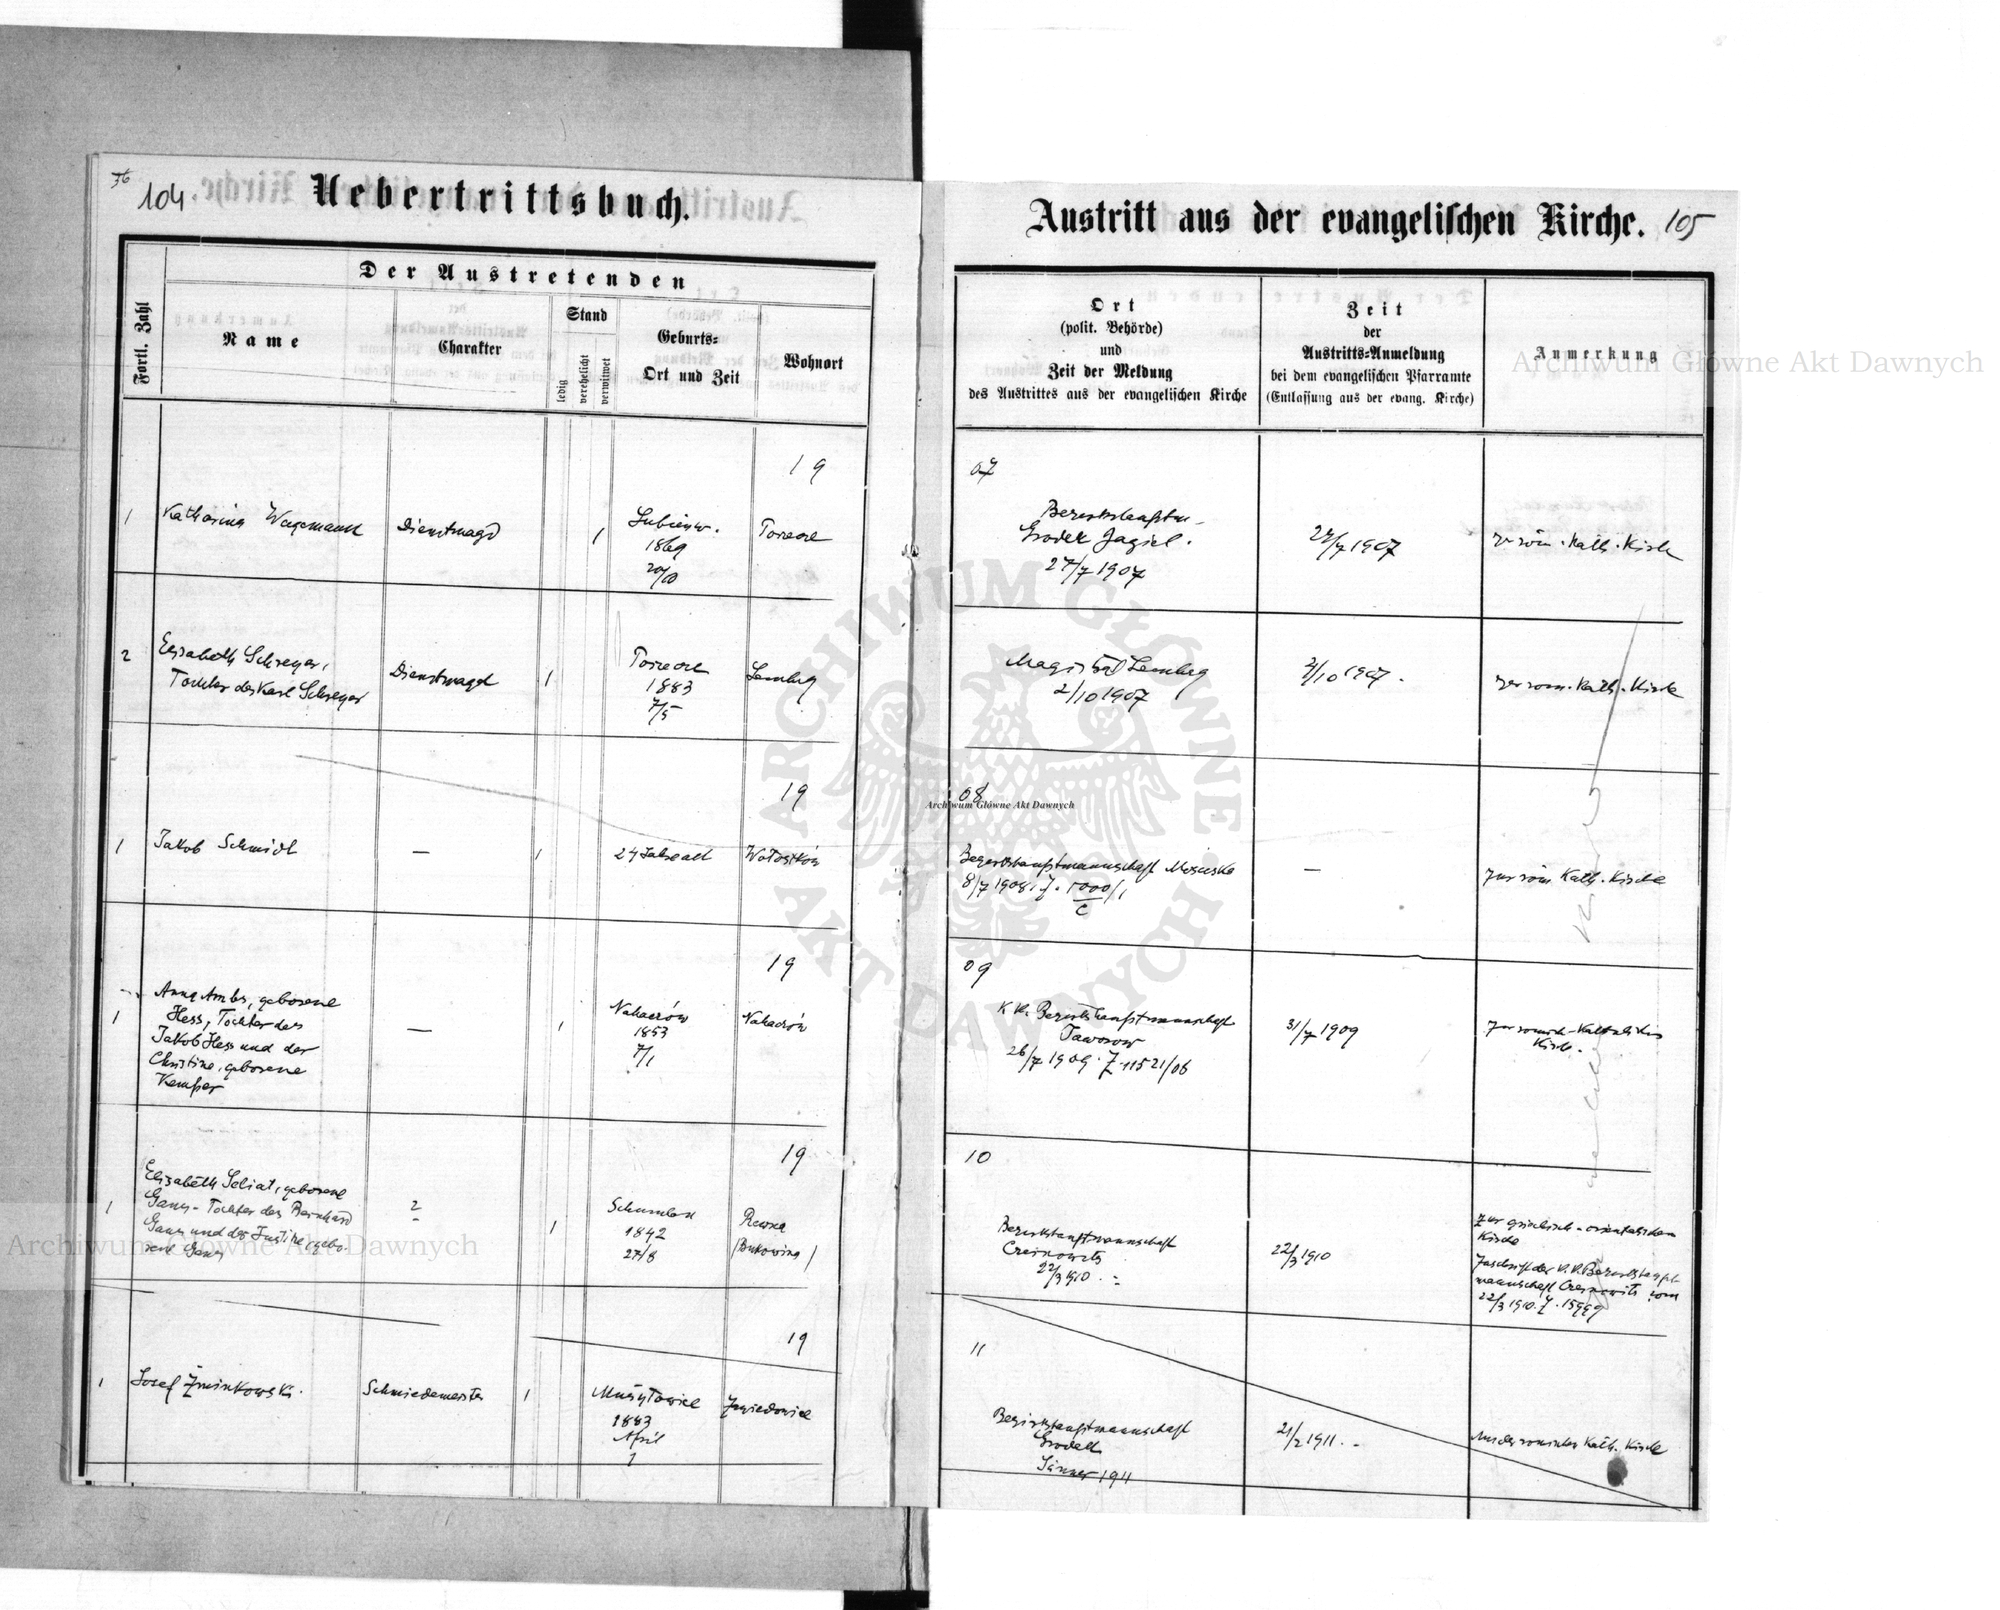 36
104.
Uebertrittsbuch.
Fortl. Zahl
Der Austretenden
Name
Charakter
Stand
ledig
verehelicht
verwitwet
Geburts-
Ort und Zeit
Wohnort
19
1
Katharina Wagemann
Dienstmagd
1
Lubienw.
1869
20/10
2
Elisabeth Schreyer,
Tochter des Karl Schreyer
Dienstmagd
1
1883
7/5
Lemberg
19
1
Jakob Schmidt
—
1
24 Jahre alt
19
1
Anna Ambs, geborene
Hess, Tochter des
Jakob Hess und der
Christine, geborene
Kemper
—
1
Nahaczów
1853
7/1
Nahaczów
19
1
Elisabeth Seliat, geborene
Gany - Tochter des Bernhard
Gany und der Justine, gebo-
rene Gany
?
1
1842
27/8
Rewna
(Bukowina)
19
1
Josef Żminkowski.
Schmiedemeister
1
1883
April
1
Austritt aus der evangelischen Kirche.
105
Ort
(polit. Behörde)
und
Zeit der Meldung
des Austrittes aus der evangelischen Kirche
Zeit
der
Austritts-Anmeldung
bei dem evangelischen Pfarramte
(Entlassung aus der evang. Kirche)
Anmerkung
07
Bezirkshauptm.
Grodek Jagiel.
27/7 1907
27/7 1907
zur röm. kath. Kirche
Magistrat Lemberg
2/10 1907
2/10 1907.
zur röm. kath. Kirche
08
Bezirkshauptmannschaft Mosciska
8/7 1908. Z.
—
zur röm. kath. Kirche
09
K.k. Bezirkshauptmannschaft
Jaworow
26/7 1909. Z. 11521/06
31/7 1909
zur römisch-katholischen
Kirche.
10
Bezirkshauptmannschaft
Czernowitz
22/3 1910.
22/3 1910
zur griechisch-orientalischen
Kirche
Zuschrift der k.k. Bezirkshaupt-
mannschaft Czernowitz vom
22/3 1910. Z. 15999
11
Bezirkshauptmannschaft
Grodek
Jänner 1911
21/2 1911.
Aus der römischen kath. Kirche
Archiwum Główne Akt Dawnych
Archiwum Główne Akt Dawnych
Archiwum Główne Akt Dawnych
ARCHIWUM GŁÓWNE
AKT DAWNYCH